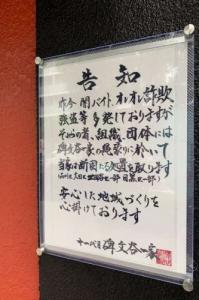 告知
昨今闇バイト、オレオレ詐欺
強盗等多発しておりますが
それらの者、組織、団体には
碑文谷一家の縄張りに於いて
当家は断固たる処置を取ります
安心した地域づくりを
心掛けております
十一代目碑文谷一家